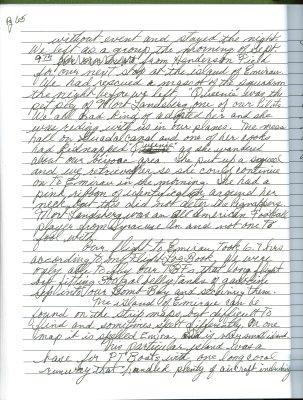 pg 65
without event and stayed the night.
We left as a group the morning of Sept
9TH from Henderson Field
for our next stop at the island of Emirau.
We had rescued a mascot of the squadron
the night before we left "Queenie" was the
pet pig of Mort Landsberg one of our pilots
We all had kind of adopted her and she
was riding with us in our planes. The mess
hall on Guadalcanal and one of her cooks
had kidnapped "Queenie" as she wandered
about our bivouac area. She put up a squeal
and we retrieved her so she could continue
on to Emirau in the morning. She had a
pink ribbon of identification around her
neck, but this did not deter the kidnappers.
Mort Landsberg was an All American Football
player from Syracuse Un. and not one to
fool with.
Our flight to Emirau took 6.7 hrs
according to my Flight Log Book. We were
only able to fly our TBF's that long flight
by fitting 50 gal belly tanks of gasoline
our bomb bay and
The island of Emirau can be
found on the strip maps, but difficult to
find and sometimes spelt differently. On one
map it is spelled Emira, and is very small island.
This particular island was a
base for PT Boats with one long coral
runway that handled plenty of aircraft including